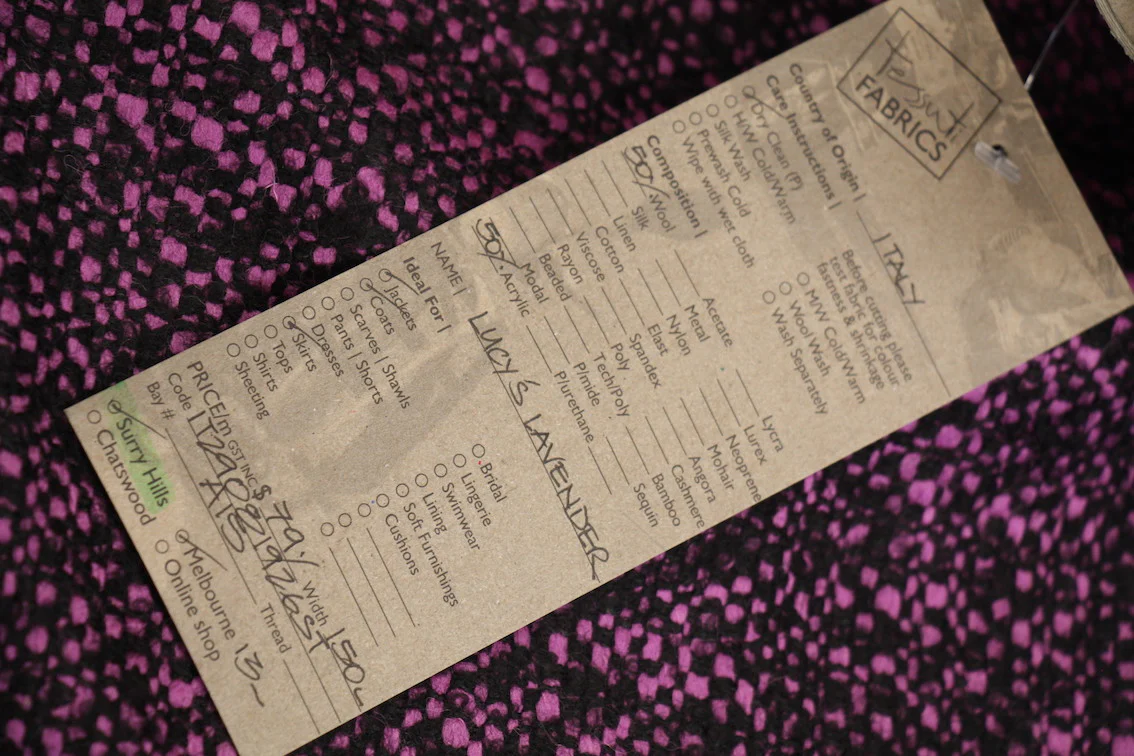 Tessuti
FABRICS
Country of Origin | ITALY
Care Instructions |
Dry Clean (P)
H/W Cold/Warm
Silk Wash
Prewash Cold
Wipe with wet cloth
Before cutting please
test fabric for colour
fastness & shrinkage
M/W Cold/Warm
Wool Wash
Wash Separately
Composition |
50%. Wool
Silk
Linen
Cotton
Viscose
Rayon
Beaded
Modal
50%. Acrylic
Acetate
Metal
Nylon
Elast
Spandex
Poly
Tech/Poly
P/mide
P/urethane
Lycra
Lurex
Neoprene
Mohair
Angora
Cashmere
Bamboo
Sequin
NAME | LUCY'S LAVENDER
Ideal For |
Jackets
Coats
Scarves | Shawls
Pants | Shorts
Dresses
Skirts
Tops
Shirts
Sheeting
Bridal
Lingerie
Swimwear
Lining
Soft Furnishings
Cushions
PRICE/m GST INC $ 79./ Width 150
Code
Bay # Thread
Surry Hills Melbourne 13
Chatswood Online shop